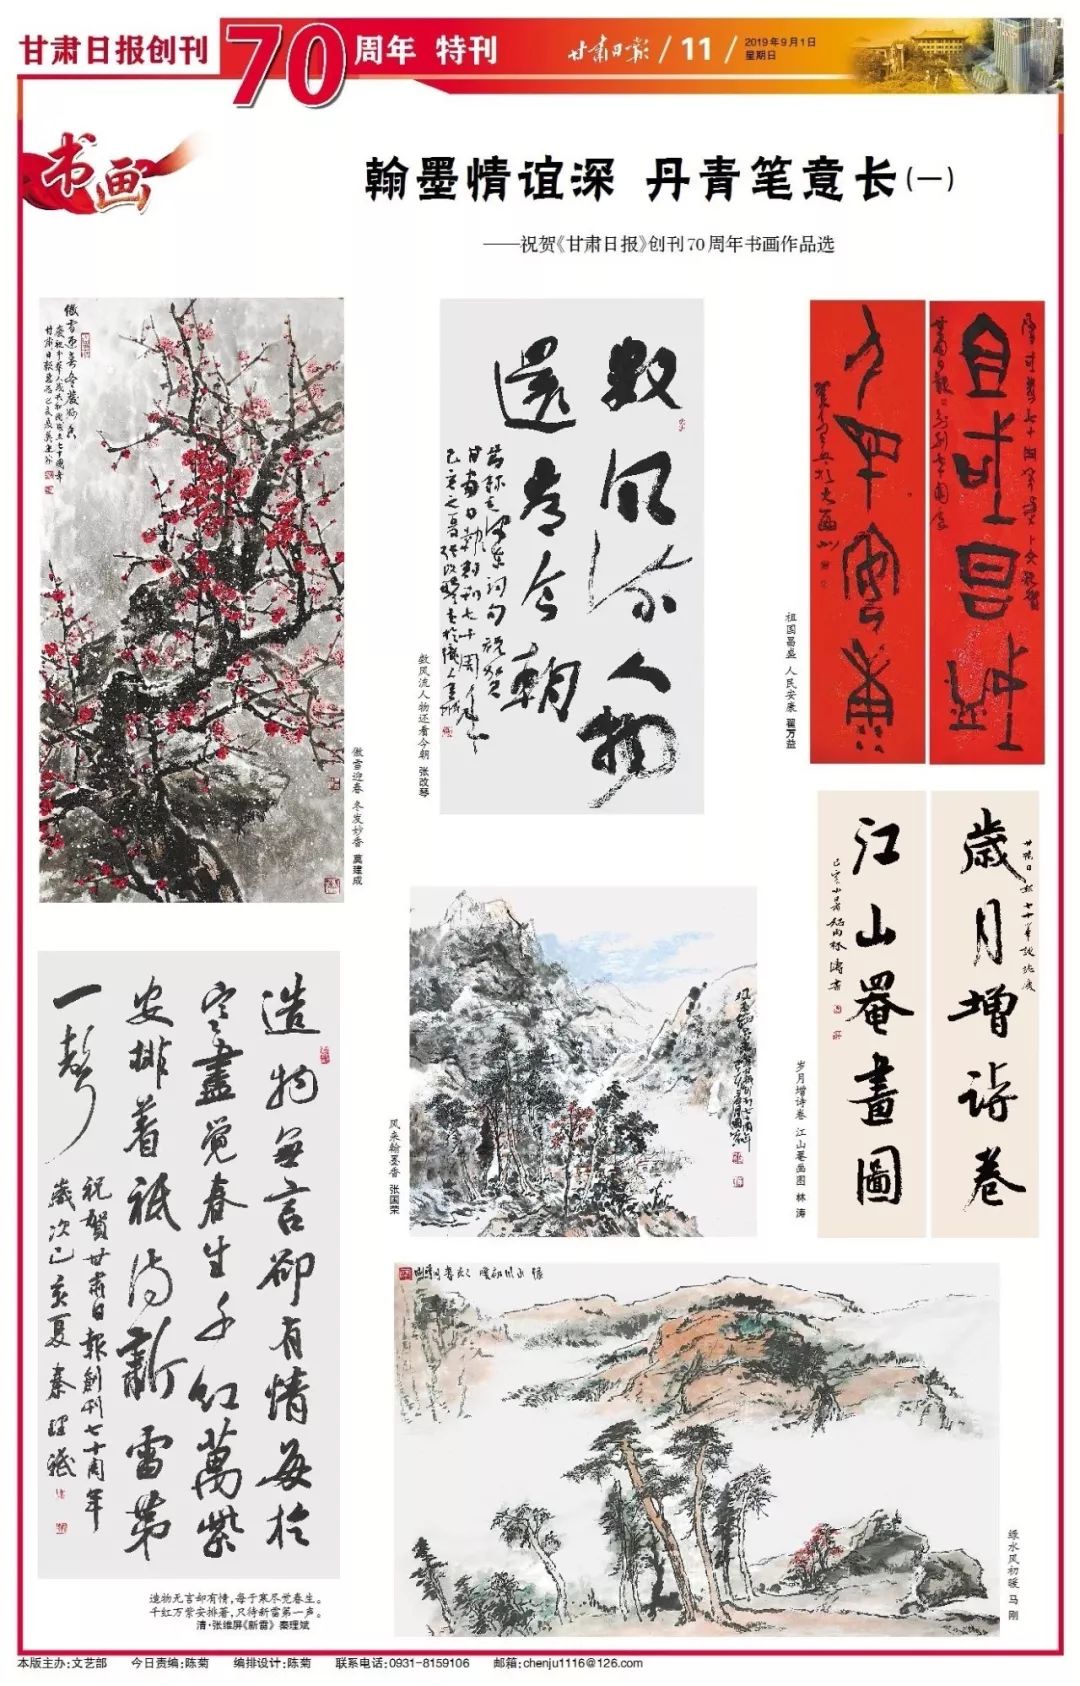 甘肃日报创刊70周年 特刊
甘肃日报 / 11 / 2019年9月1日
星期日
书画
翰墨情谊深 丹青笔意长(一)
——祝贺《甘肃日报》创刊70周年书画作品选
傲雪迎春 冬发妙香 莫建成
数风流人物
还看今朝
甘肃日报创刊七十周年
数风流人物还看今朝 张改琴
祖国昌盛
人民安康
祖国昌盛 人民安康 翟万益
歲月增诗卷
江山罨畫圖
岁月增诗卷 江山罨画图 林涛
风来翰墨香 张国荣
造物無言卻有情每於
寒盡覺春生千红萬紫
安排着祇待新雷第
一聲
祝賀甘肃日報創刊七十周年
歲次己亥夏秦理斌
造物无言却有情,每于寒尽觉春生。
千红万紫安排著,只待新雷第一声。
清·张维屏《新雷》 秦理斌
绿水风初暖 马刚
本版主办:文艺部 今日责编:陈菊 编排设计:陈菊 联系电话:0931-8159106 邮箱:chenju1116@126.com